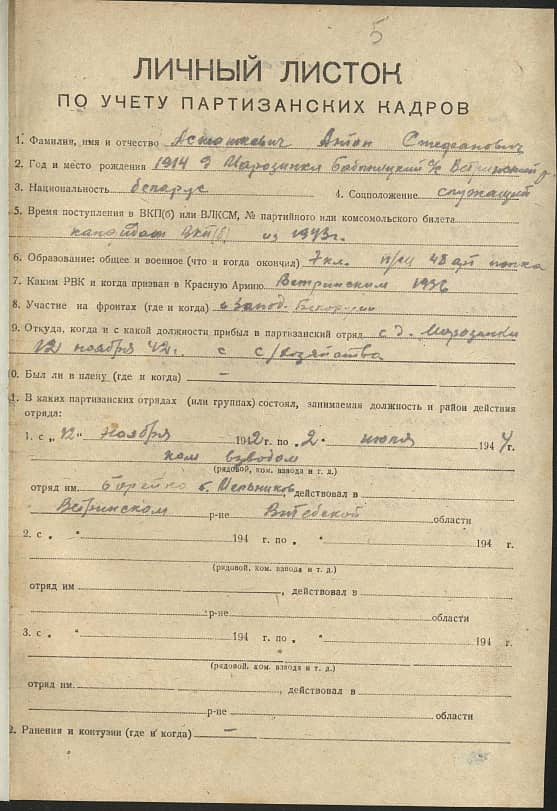 5
ЛИЧНЫЙ ЛИСТОК
ПО УЧЕТУ ПАРТИЗАНСКИХ КАДРОВ
1. Фамилия, имя и отчество Антон Стефанович
2. Год и место рождения 1914 д Марозинки с/с Ветринский р
3. Национальность беларус 4. Соцположение служащий
5. Время поступления в ВКП(б) или ВЛКСМ, № партийного или комсомольского билета
кандидат ВКП(б) из 1943г.
6. Образование: общее и военное (что и когда окончил) 7 кл. 48 арт полка
7. Каким РВК и когда призван в Красную Армию Ветринским 1936
8. Участие на фронтах (где и когда) в Запад. Белоруссии
9. Откуда, когда и с какой должности прибыл в партизанский отряд с д. Марозинки
12 ноября 42г. с с/хозяйства
0. Был ли в плену (где и когда) —
1. В каких партизанских отрядах (или группах) состоял, занимаемая должность и район действия
отряда:
1. с „12" ноября 1942г. по „2" июля 1944г.
ком взводом
(рядовой, ком. взвода и т. д.)
отряд им. б. Мельников действовал в
Ветринском р-не Витебской области
2. с „ " 194 г. по „ " 194 г.
(рядовой, ком. взвода и т. д.)
отряд им , действовал в
р-не области
3. с „ " 194 г. по „ " 194 г.
(рядовой, ком. взвода и т. д.)
отряд им. , действовал в
р-не области
2. Ранения и контузии (где и когда) —